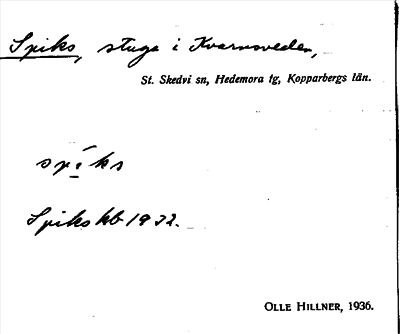 Spiks, stuga i Kvarnsveden,
St. Skedvi sn, Hedemora tg, Kopparbergs län.
spíks
Spiks kb 1932.
OLLE HILLNER, 1936.